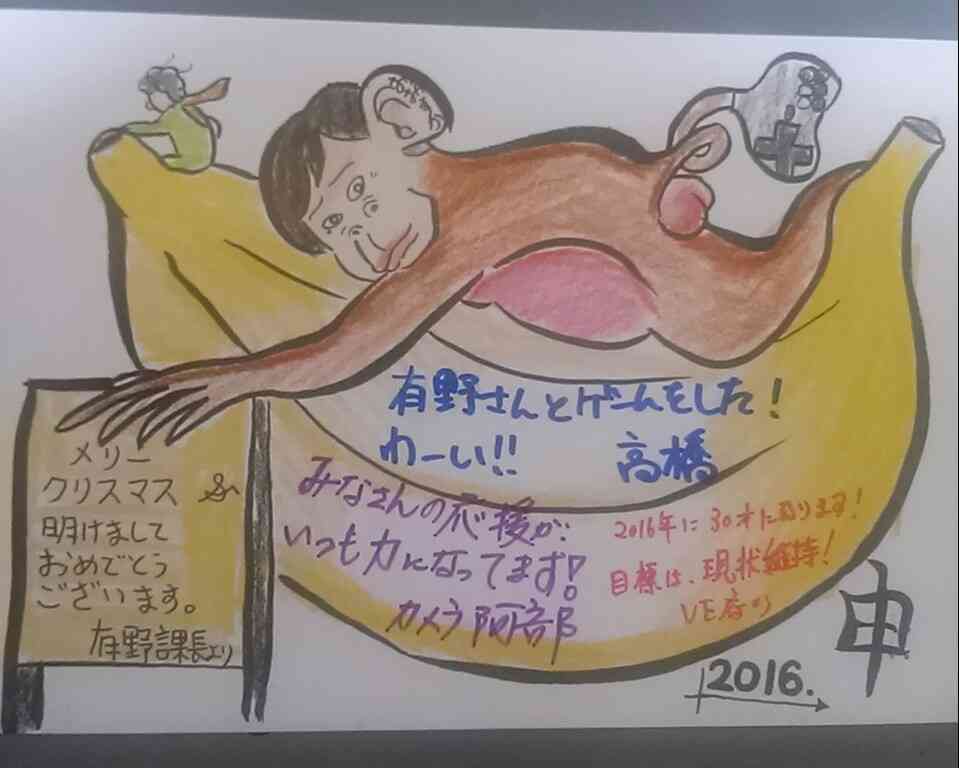 有野さんとゲームをした!
わーい!! 高橋
みなさんの応援が
いつも力になってます!
カメラ阿部
2016年に30才になります!
目標は、現状維持!
VE
メリー
クリスマス &
明けまして
おめでとう
ございます。
有野課長より
申
2016.